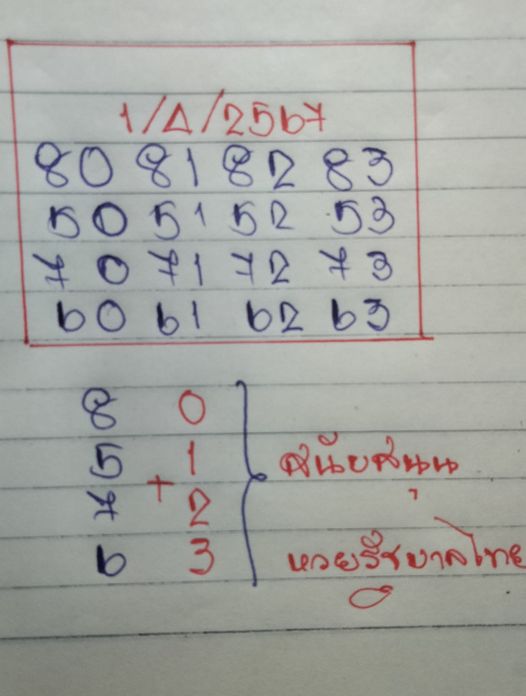 1/4/2567
80 81 82 83
50 51 52 53
70 71 72 73
60 61 62 63
8 0
5 1
7 + 2
6 3
สนับสนุน
หวยรัฐบาลไทย